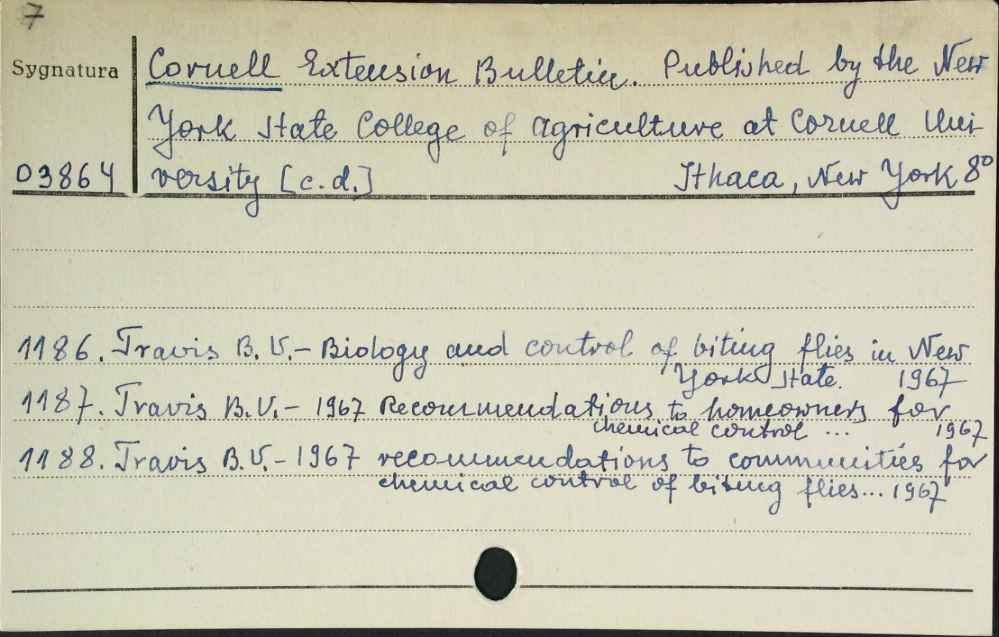 7
Sygnatura
Cornell Extension Bulletin. Published by the New
York State College of agriculture at Cornell Uni-
03864
versity [c.d.] Ithaca, New York 8°
1186. Travis B.V. - Biology and control of biting flies in New
York State. 1967
1187. Travis B.V. - 1967 Recommendations to homeowners for
chemical control ... 1967
1188. Travis B.V. - 1967 recommendations to communities for
chemical control of biting flies... 1967